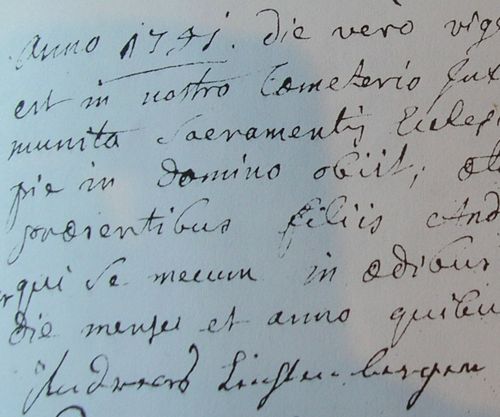 Anno 1741. die vero vige
est in nostro Cœmeterio Jux
munita Sacramentis Eclesi
pie in Domino obiit, æta
præsentibus filiis And
qui se mecum in ædibus
die mense et anno quibu
Andreas Lichtenberger